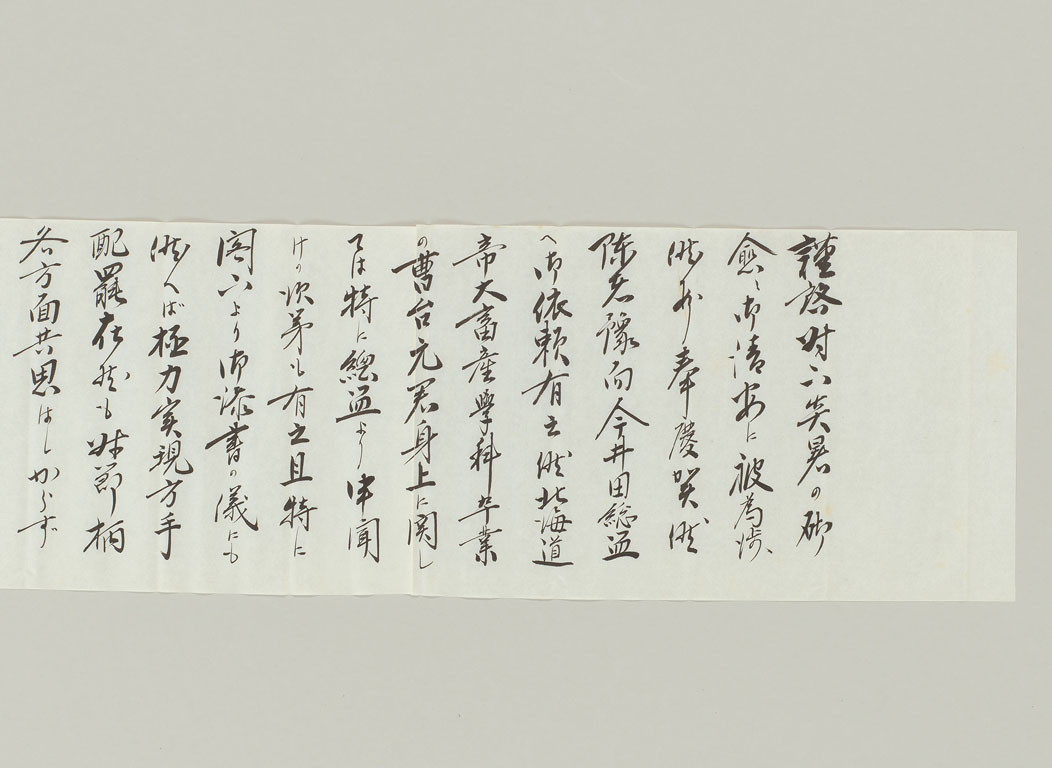 謹啓時下炎暑の砌
愈々御清安に被為渉、
候段奉慶賀候
陳者豫而今井田総監
へ御依頼有之候北海道
帝大畜産學科卒業
の曹台元君身上に関し
ては特に總監より申聞
けの次第も有之且特に
閣下より御添書の儀にも
候へば極力実現方手
配罷在候も時節柄
各方面共思はしからず